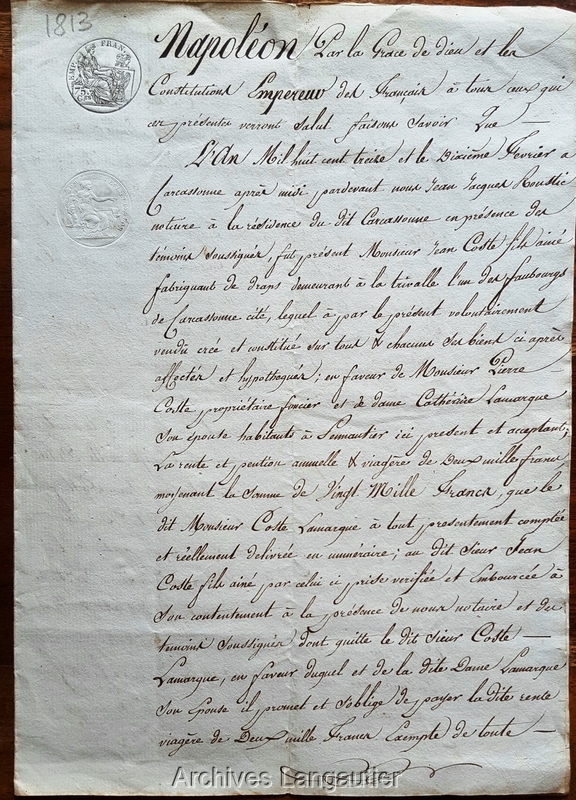 1813
EMP. FRAN.
Napoléon Par la Grace de dieu et les
Constitutions Empereur des Français à tous ceux qui
ces présentes verront Salut faisons Savoir Que —
L'An Mil huit cent treize et le Dixième Fevrier a
Carcassonne après midi pardevant nous Jean Jacques Roustic
notaire à la résidence du dit Carcassonne en présence des
témoins soussignés, fut présent Monsieur Jean Coste fils ainé
fabriquant de draps demeurant à la trivalle l'un des faubourgs
de Carcassonne cité, lequel à par le présent volontairement
vendu créé et constitué sur tous & chacuns ses biens ci après
affectés et hypothequés; en faveur de Monsieur Pierre —
Coste propriétaire foncier et de dame Cathérine Lamarque
Son épouse habitants à Pennautier ici présent et acceptant;
La rente et pention annuelle & viagère de Deux mille francs
moyenant la somme de Vingt Mille Francs, que le
dit Monsieur Coste Lamarque à tout présentement comptée
et réellement délivrée en numéraire; au dit Sieur Jean
Coste fils ainé par celui ci prise verifiée et Embourcée à
Son contentement à la présence de nous notaire et des
temoins soussignés dont quitte le dit Sieur Coste —
Lamarque, en faveur duquel et de la dite Dame Lamarque
Son Epouse il promet et s'oblige de payer la dite rente
viagère de Deux mille Francs Exempte de toute —
Archives Langautier